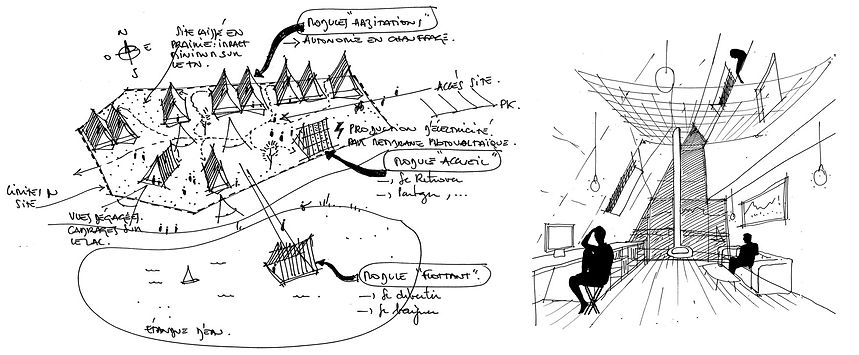 N
E
S
O
SITE LAISSÉ EN
PRAIRIE: IMPACT
MINIMUM SUR
LE TN.
MODULES "HABITATIONS"
→ AUTONOMIE EN CHAUFFAGE.
ACCÈS SITE.
PK.
PRODUCTION D'ÉLECTRICITÉ
PAR MEMBRANE PHOTOVOLTAÏQUE.
MODULE "ACCUEIL"
→ Se Retrouver
→ Partager, ...
SITE
VUES DÉGAGÉES.
CADRAGES SUR
LE LAC.
MODULE "FLOTTANT".
→ Se divertir
→ Se baigner